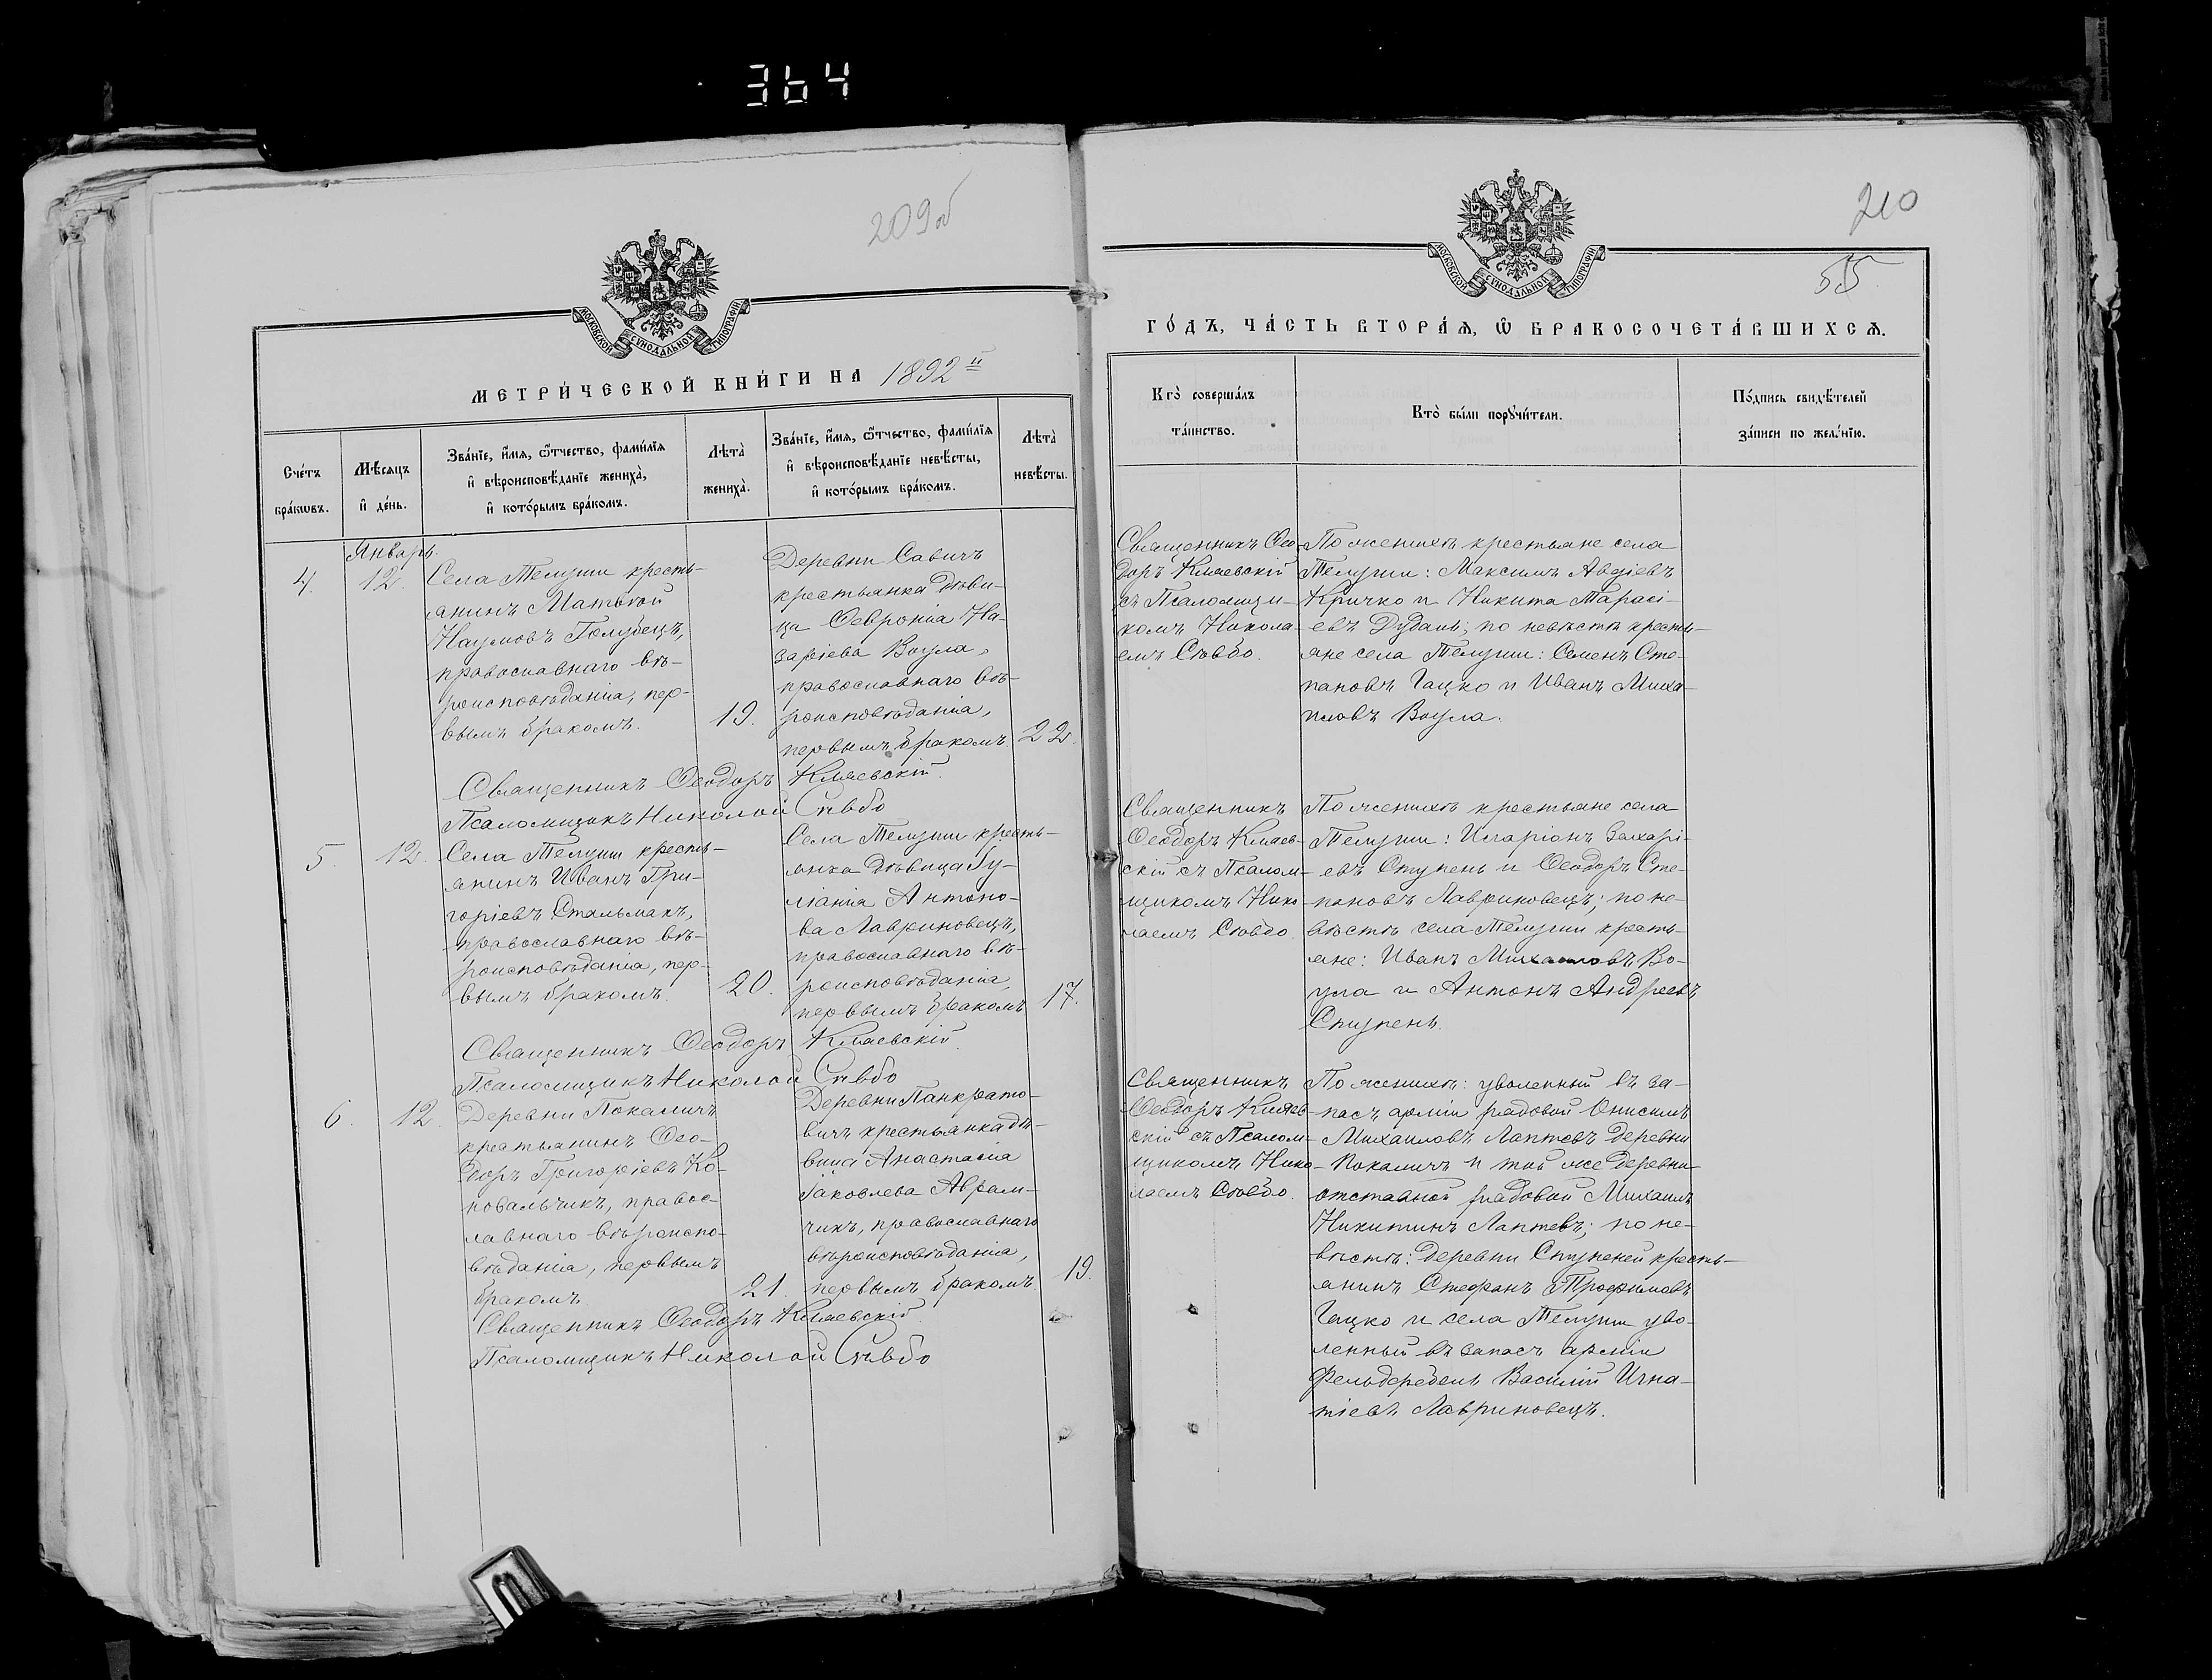 364
209об
МОСКОВСКОЙ СѴНОДАЛЬНОЙ ТИПОГРАФІИ
МЕТРИ́ЧЕСКОЙ КНИ́ГИ НА 1892й
Сче́тъ бра́кѡвъ.
Мѣ́сяцъ и҆ де́нь.
Зва́нїе, и҆́мѧ, ѻ҆́тчество, фами́лїѧ
и҆ вѣроисповѣ́данїе жениха̀,
и҆ кото́рымъ бра́комъ.
Лѣта̀ жениха̀.
Зва́нїе, и҆́мѧ, ѻ҆́тчество, фами́лїѧ
и҆ вѣроисповѣ́данїе невѣ́сты,
и҆ кото́рымъ бра́комъ.
Лѣта̀ невѣ́сты.
Январь.
4. 12.
Села Телуши кресть-
янинъ Матѳей
Наумовъ Голубецъ,
православнаго вѣ-
роисповѣданія, пер-
вымъ бракомъ.
19.
Деревни Савичъ
крестьянка дѣви-
ца Ѳевронія На-
заріева Воула,
православнаго вѣ-
роисповѣданія,
первымъ бракомъ.
22.
Священникъ Ѳеодоръ Кляевскій.
Псаломщикъ Николай Сѣвбо
5. 12.
Села Телуши кресть-
янинъ Иванъ Гри-
горіевъ Стальмакъ,
православнаго вѣ-
роисповѣданія, пер-
вымъ бракомъ.
20.
Села Телуши кресть-
янка дѣвица Іу-
ліанія Антоно-
ва Лавриновецъ,
православнаго вѣ-
роисповѣданія,
первымъ бракомъ
17.
Священникъ Ѳеодоръ Кляевскій.
Псаломщикъ Николай Сѣвбо
6. 12.
Деревни Покаличъ
крестьянинъ Ѳео-
доръ Григоріевъ Ко-
новальчикъ, правос-
лавнаго вѣроиспо-
вѣданія, первымъ
бракомъ.
21.
Деревни Панкрато-
вичъ крестьянка дѣ-
вица Анастасія
Іаковлева Аврам-
чикъ, православнаго
вѣроисповѣданія,
первымъ бракомъ.
19.
Священникъ Ѳеодоръ Кляевскій.
Псаломщикъ Николай Сѣвбо
210
МОСКОВСКОЙ СѴНОДАЛЬНОЙ ТИПОГРАФІИ
55
ГО́ДЪ, ЧА́СТЬ ВТОРА́Ѧ, Ѡ҆ БРАКОСОЧЕТА́ВШИХСѦ.
Кто̀ соверша́лъ
та́инство.
Кто̀ бы́ли порꙋчи́тели.
По́дпись свидѣ́телей
за́писи по жела́нїю.
Священникъ Ѳео-
доръ Кляевскій
съ Псаломщи-
комъ Никола-
емъ Сѣвбо.
По женихѣ крестьяне села
Телуши: Максимъ Авдіевъ
Кричко и Никита Тарасі-
евъ Дубань; по невѣстѣ кресть-
яне села Телуши: Семенъ Сте-
пановъ Гацко и Иванъ Миха-
иловъ Воула.
Священникъ
Ѳеодоръ Кляев-
скій съ Псалом-
щикомъ Нико-
лаемъ Сѣвбо
По женихѣ крестьяне села
Телуши: Иларіонъ Захарі-
евъ Ступень и Ѳеодоръ Сте-
пановъ Лавриновецъ; по не-
вѣстѣ села Телуши кресть-
яне: Иванъ Михаиловъ Во-
ула и Антонъ Андреевъ
Ступень.
Священникъ
Ѳеодоръ Кляев-
скій съ Псалом-
щикомъ Нико-
лаемъ Сѣвбо.
По женихѣ: уволенный въ за-
пасъ арміи рядовой Онисимъ
Михаиловъ Лаптевъ деревни
Покаличъ и той же деревни
отставной рядовой Михаилъ
Никитинъ Лаптевъ; по не-
вѣстѣ: деревни Ступеней кресть-
янинъ Стефанъ Трофимовъ
Гацко и села Телуши уво-
ленный въ запасъ арміи
Фельдфебель Василій Игна-
тіевъ Лавриновецъ.